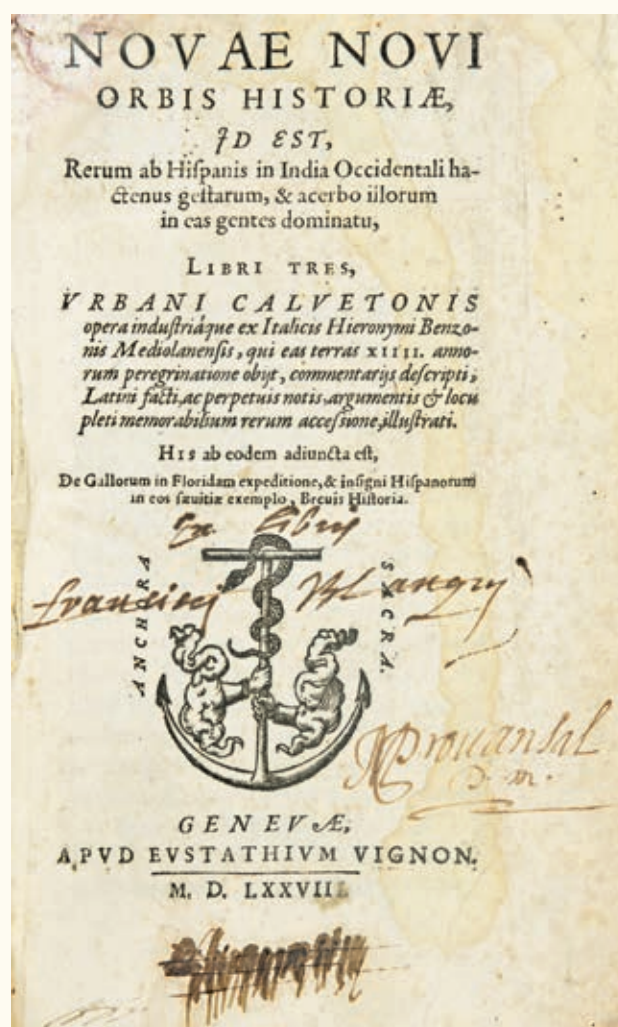 NOVAE NOVI
ORBIS HISTORIÆ,
ID EST,
Rerum ab Hiſpanis in India Occidentali ha-
ctenus geſtarum, & acerbo illorum
in eas gentes dominatu,
LIBRI TRES,
VRBANI CALVETONIS
opera induſtriáque ex Italicis Hieronymi Benzo-
nis Mediolanenſis, qui eas terras XIIII. anno-
rum peregrinatione obijt, commentarijs deſcripti,
Latini facti, ac perpetuis notis, argumentis & locu
pleti memorabilium rerum acceſsione, illuſtrati.
HIS ab eodem adiuncta eſt,
De Gallorum in Floridam expeditione, & inſigni Hiſpanorum
in eos ſæuitiæ exemplo, Breuis Hiſtoria.
Ex libris
Francisci
ANCHORA SACRA.
Prouansal
D. m.
GENEVÆ,
APVD EVSTATHIVM VIGNON.
M. D. LXXVIII